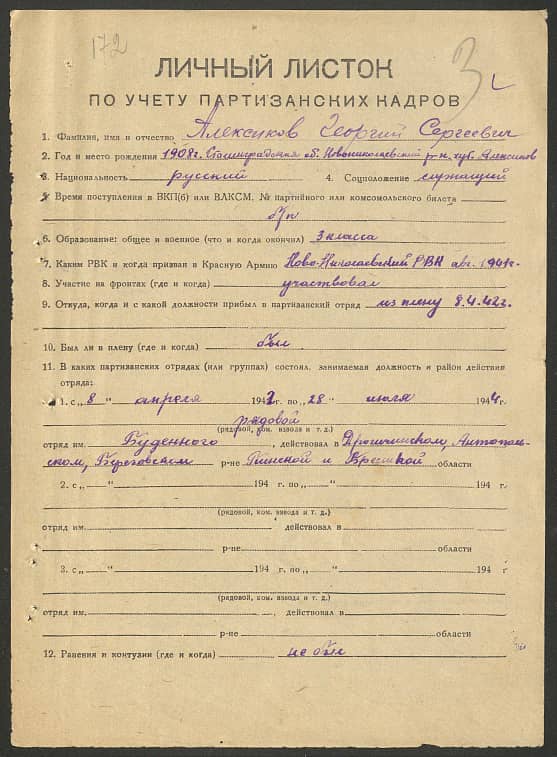 172
3
ЛИЧНЫЙ ЛИСТОК
ПО УЧЕТУ ПАРТИЗАНСКИХ КАДРОВ
1. Фамилия, имя и отчество Алексиков Георгий Сергеевич
2. Год и место рождения 1908 г. Сталинградская об. Новониколаевский р-н, хут. Алексиков
3. Национальность русский 4. Соцположение служащий
5. Время поступления в ВКП(б) или ВЛКСМ, № партийного или комсомольского билета
б/п
6. Образование: общее и военное (что и когда окончил) 3 класса
7. Каким РВК и когда призван в Красную Армию Ново-Николаевский РВК авг. 1941 г.
8. Участие на фронтах (где и когда) участвовал
9. Откуда, когда и с какой должности прибыл в партизанский отряд из плену 8.4.42 г.
10. Был ли в плену (где и когда) был
11. В каких партизанских отрядах (или группах) состоял, занимаемая должность и район действия
отряда:
1. с „ 8 “ апреля 1942 г. по „ 28 “ июля 1944 г.
рядовой
(рядовой, ком. взвода и т. д.)
отряд им. Буденного, действовал в Дрогичинском, Антополь-
ском, Березовском р-не Пинской и Брестской области
2. с „ “ 194 г. по „ “ 194 г.
(рядовой, ком. взвода и т. д.)
отряд им. действовал в
р-не области
3. с „ “ 194 г. по „ “ 194 г
(рядовой, ком. взвода и т. д.)
отряд им. , действовал в
р-не области
12. Ранения и контузии (где и когда) не был